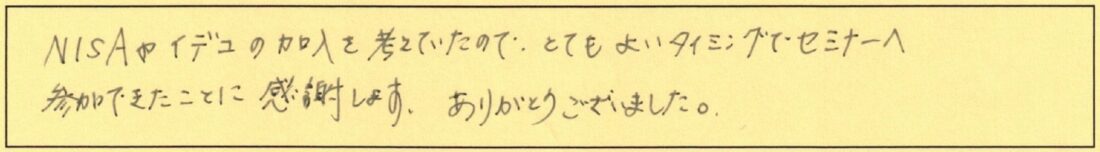 NISAやイデコの加入を考えていたので、とてもよいタイミングでセミナーへ
参加できたことに感謝します。ありがとうございました。